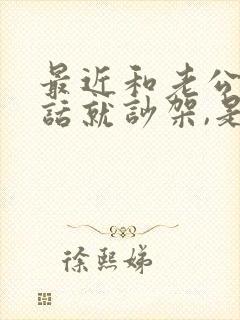 最近和老公
話就訬架,是
徐熙娣